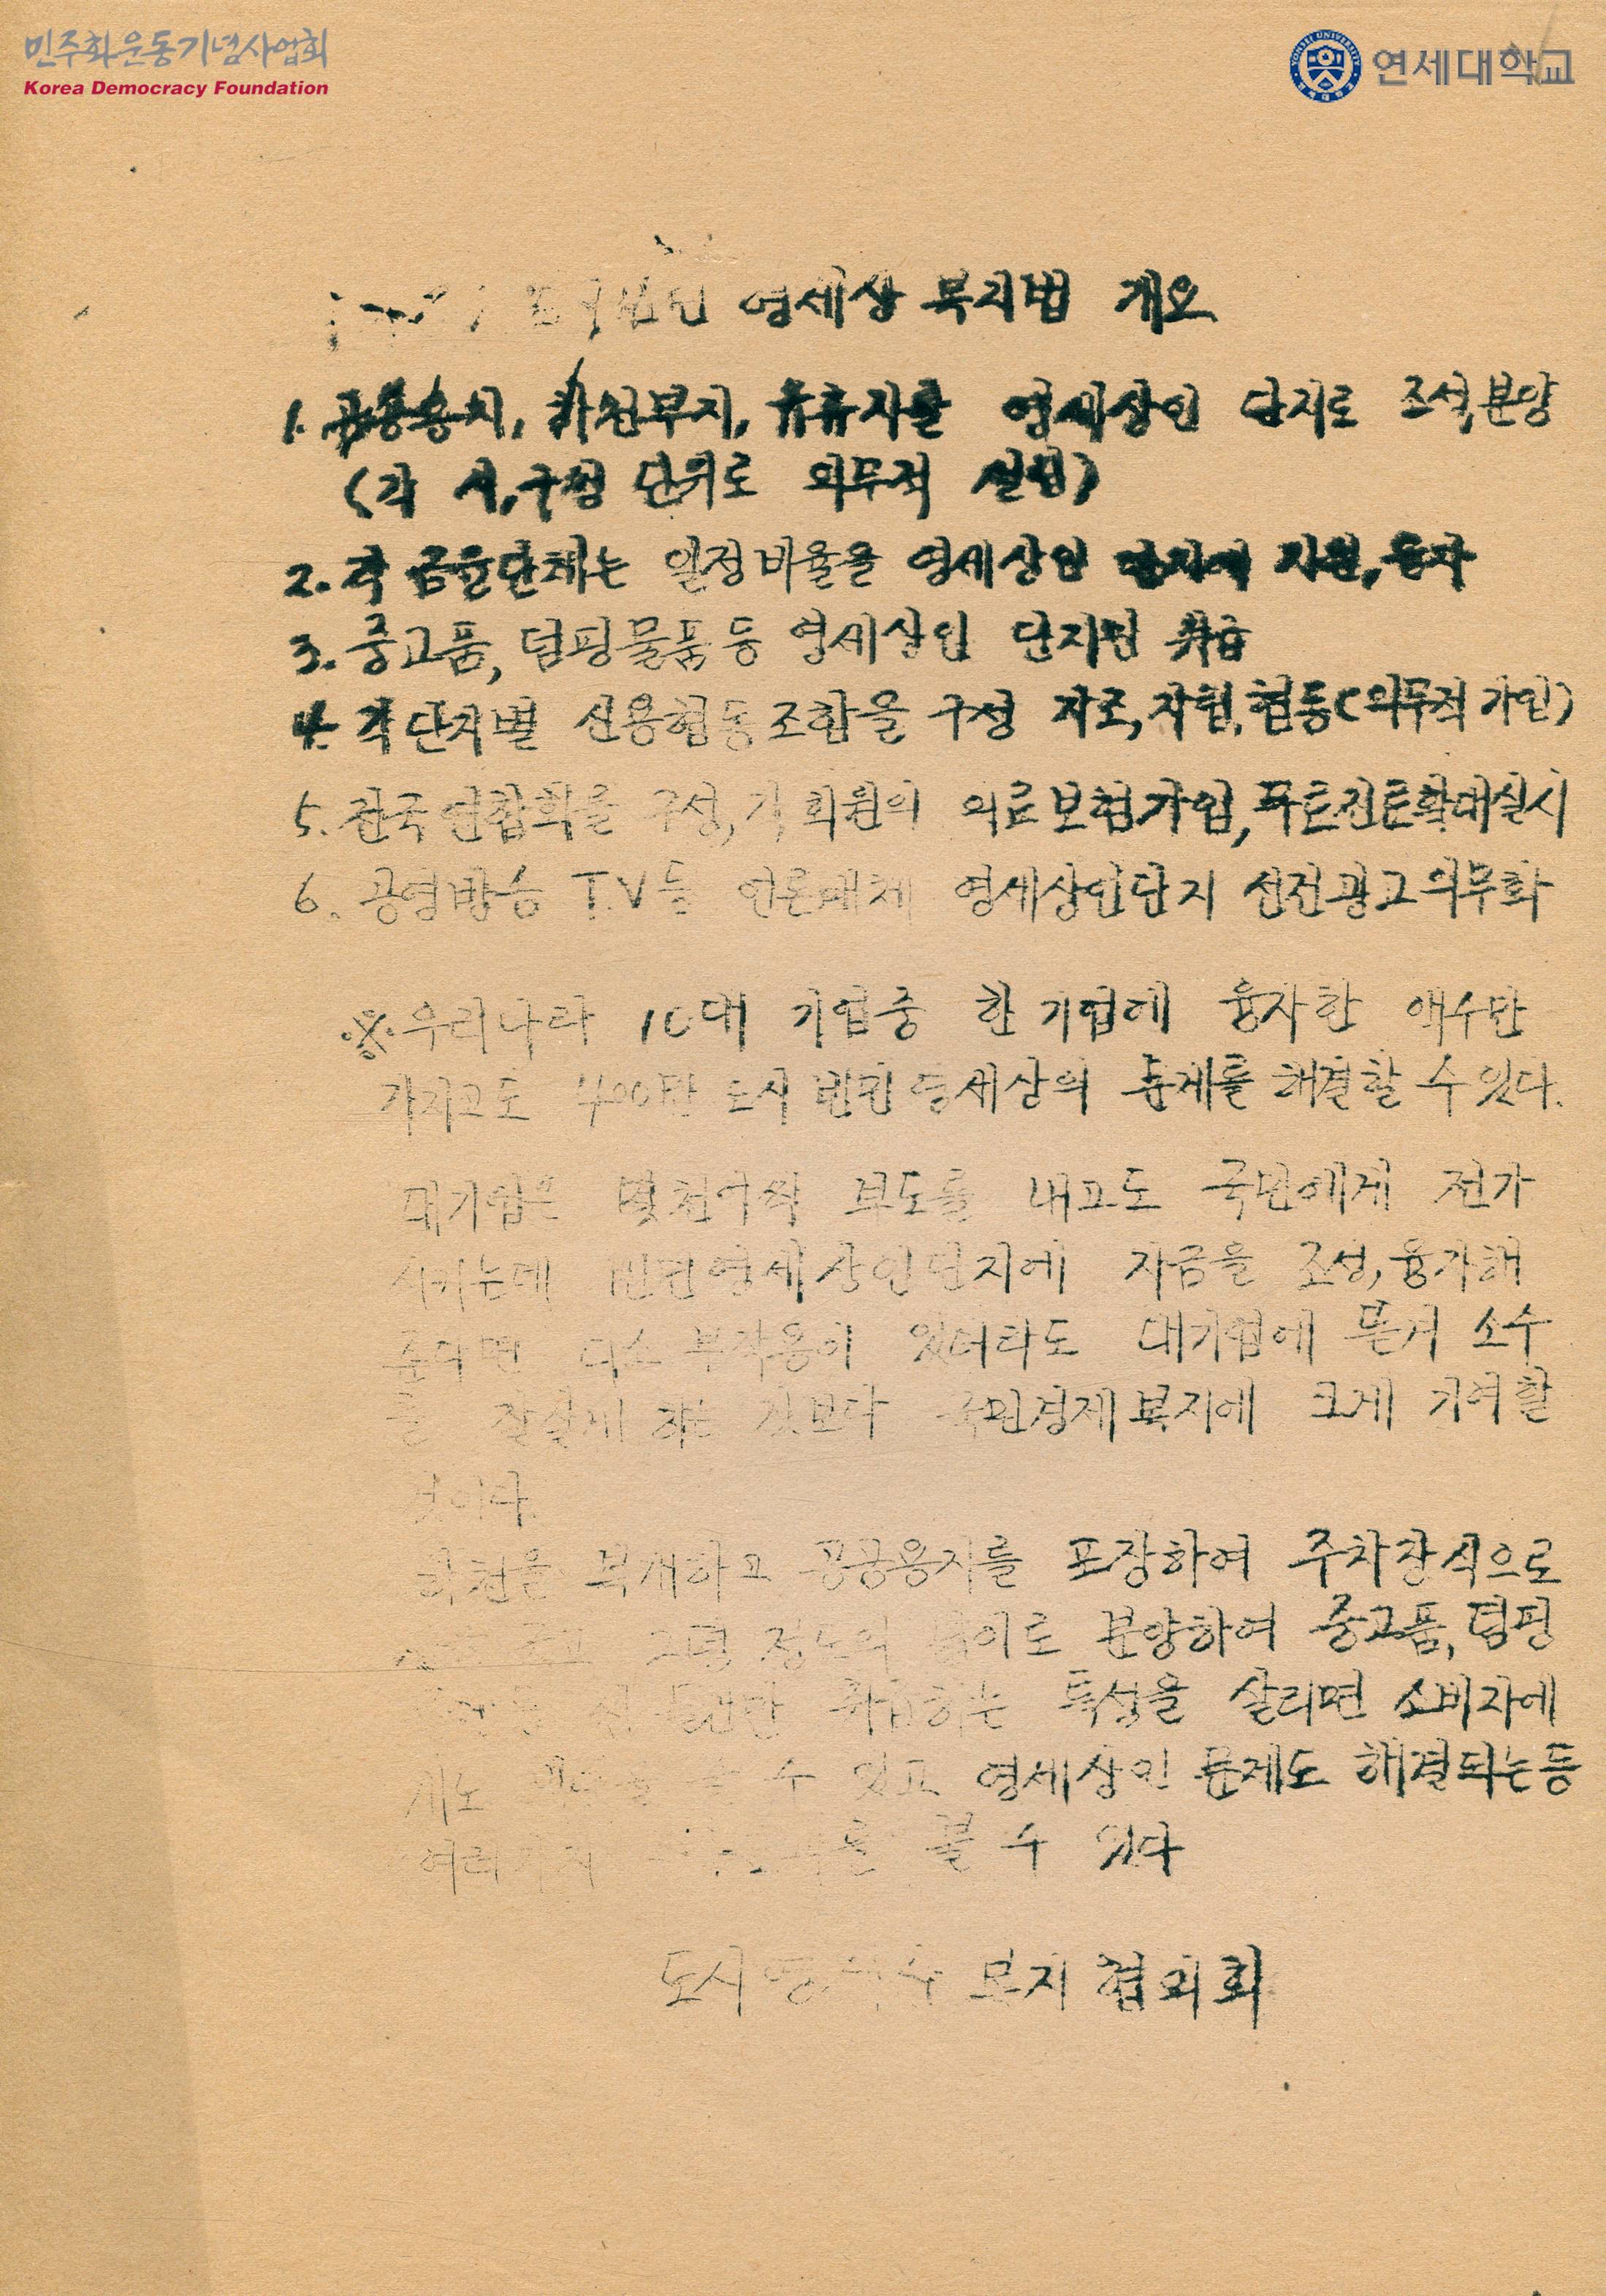 민주화운동기념사업회
Korea Democracy Foundation
연세대학교
영세상 복지법 개요
1. 공공용지, 하천부지, 유휴지를 영세상인 단지로 조성, 분양
(각 시, 구청 단위로 의무적 설정)
2. 각 금융단체는 일정비율을 영세상인 단지에 지원, 융자
3. 중고품, 덤핑물품 등 영세상인 단지면 취급
4. 각 단지별 신용협동조합을 구성 자조, 자립, 협동(의무적 가입)
5. 전국연합회을 구성, 각 회원의 의료보험가입, 확대실시
6. 공영방송 T.V등 언론매체 영세상인단지 선전광고의무화
※ 우리나라 10대 기업중 한 기업에 융자한 액수만
가지고도 400만 도시 빈민영세상의 문제를 해결할 수 있다.
대기업은 몇천억씩 부도를 내고도 국민에게 전가
시키는데 빈민영세상인단지에 자금을 조성, 융자해
준다면 다소 부작용이 있더라도 대기업에 뜯겨 소수
를 잘살게 하는 것보다 국민경제복지에 크게 기여할
것이다.
하천을 복개하고 공공용지를 포장하여 주차장식으로
2평 정도의 분양하여 중고품, 덤핑
취급하는 특성을 살리면 소비자에
게도 수 있고 영세상인 문제도 해결되는등
여러가지 볼 수 있다
도시영세상 복지 협의회